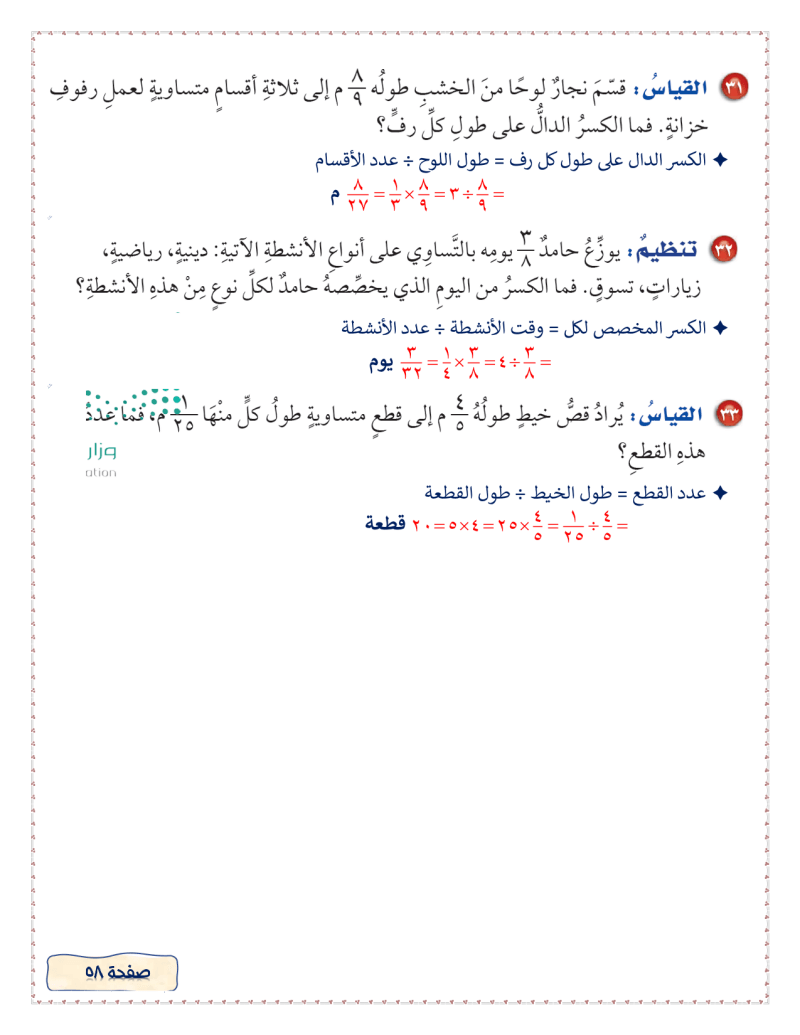 ٣١ القياسُ: قسّمَ نجارٌ لوحًا منَ الخشبِ طولُه ٨/٩ م إلى ثلاثةِ أقسامٍ متساويةٍ لعملِ رفوفِ
خزانةٍ. فما الكسرُ الدالُّ على طولِ كلِّ رفٍّ؟
✦ الكسر الدال على طول كل رف = طول اللوح ÷ عدد الأقسام
= ٨/٩ ÷ ٣ = ٨/٩ × ١/٣ = ٨/٢٧ م
٣٢ تنظيمٌ: يوزِّعُ حامدٌ ٣/٨ يومِه بالتَّساوِي على أنواعِ الأنشطةِ الآتيةِ: دينيةٍ، رياضيةٍ،
زياراتٍ، تسوقٍ. فما الكسرُ من اليومِ الذي يخصِّصهُ حامدٌ لكلِّ نوعٍ مِنْ هذهِ الأنشطةِ؟
✦ الكسر المخصص لكل = وقت الأنشطة ÷ عدد الأنشطة
= ٣/٨ ÷ ٤ = ٣/٨ × ١/٤ = ٣/٣٢ يوم
٣٣ القياسُ: يُرادُ قصُّ خيطٍ طولُهُ ٤/٥ م إلى قطعٍ متساويةٍ طولُ كلٍّ منْهَا ١/٢٥ م، فَما عددُ
هذهِ القطعِ؟
وزار
ation
✦ عدد القطع = طول الخيط ÷ طول القطعة
= ٤/٥ ÷ ١/٢٥ = ٤/٥ × ٢٥ = ٤ × ٥ = ٢٠ قطعة
صفحة ٥٨